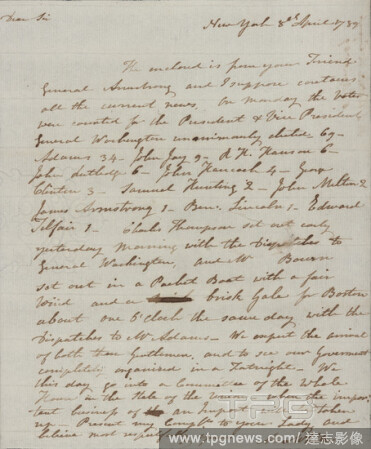 Dear Sir
New York 8th April 1789
The enclosed is from your Friend
General Armstrong and I suppose contains
all the current news, On monday the Votes
were counted for the President & Vice President
General Washington unanimously elected 69 —
Adams 34 — John Jay 9 — R. H. Hanson 6 —
John Rutledge 6 — John Hancock 4 — George
Clinton 3 — Samuel Hunting 2 — John Milton 2
James Armstrong 1 — Ben. Lincoln 1 — Edward
Telfair 1 — Charles Thompson set out early
yesterday Morning with the Dispatches to
General Washington, and Mr Bourn
set out in a Packet Boat with a fair
Wind and a brisk Gale for Boston
about one O'Clock the same day with the
Dispatches to Mr Adams — We expect the arrival
of both these Gentlemen, and to see our Government
completely organised in a Fortnight — We
this day go into a Committee of the Whole
House on the State of the Union, when the impor-
tent business of an Impost will be taken
up. Present my Compts to your Lady and
believe most respectfully
TPG
www.tpgnews.com / 達志影像